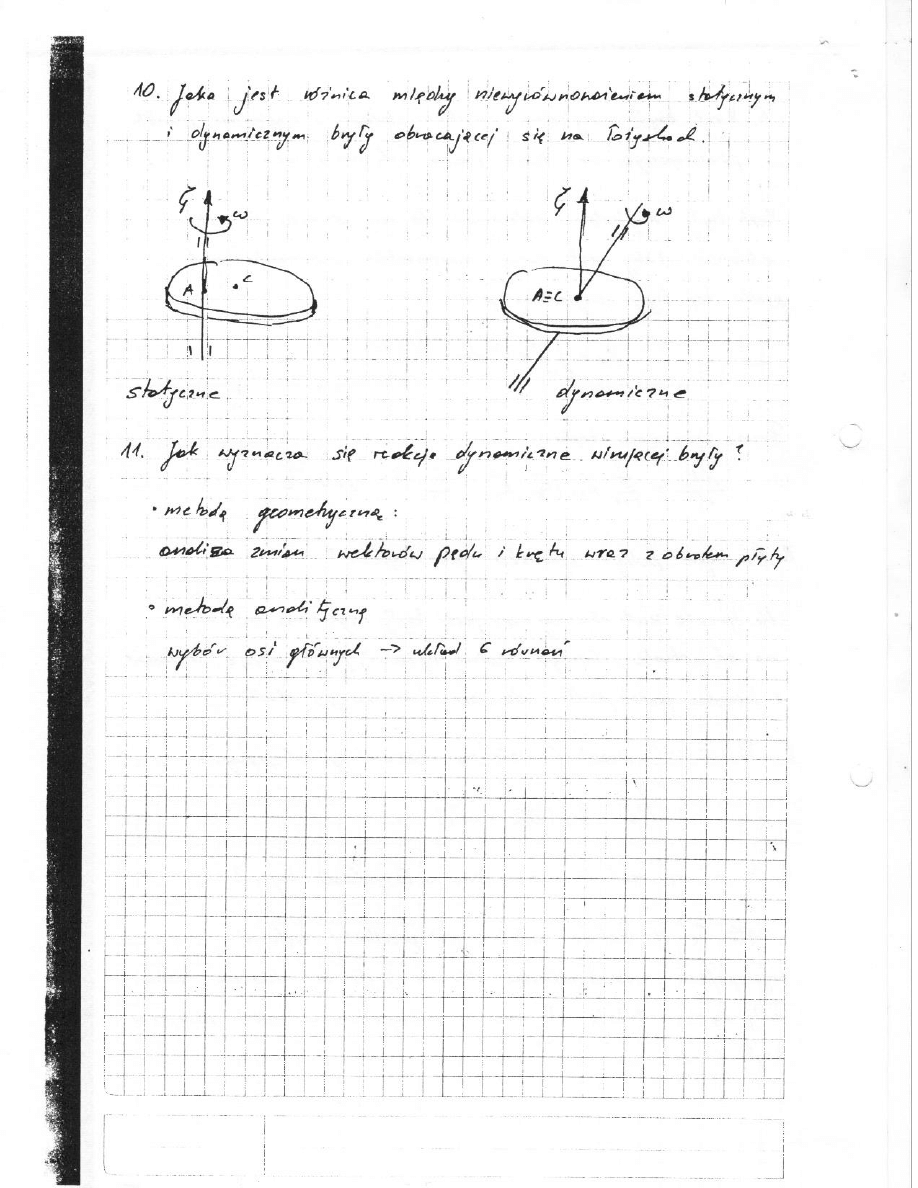 10. Jaka jest różnica między niewyrównoważeniem statycznym
i dynamicznym bryły obracającej się na łożyskach.
ζ ω
A C
ζ ω
A≡C
statyczne
dynamiczne
11. Jak wyznacza się reakcje dynamiczne wirującej bryły?
• metodą geometryczną:
analiza zmian wektorów pędu i krętu wraz z obrotem płyty
• metodą analityczną
wybór osi głównych → układ 6 równań